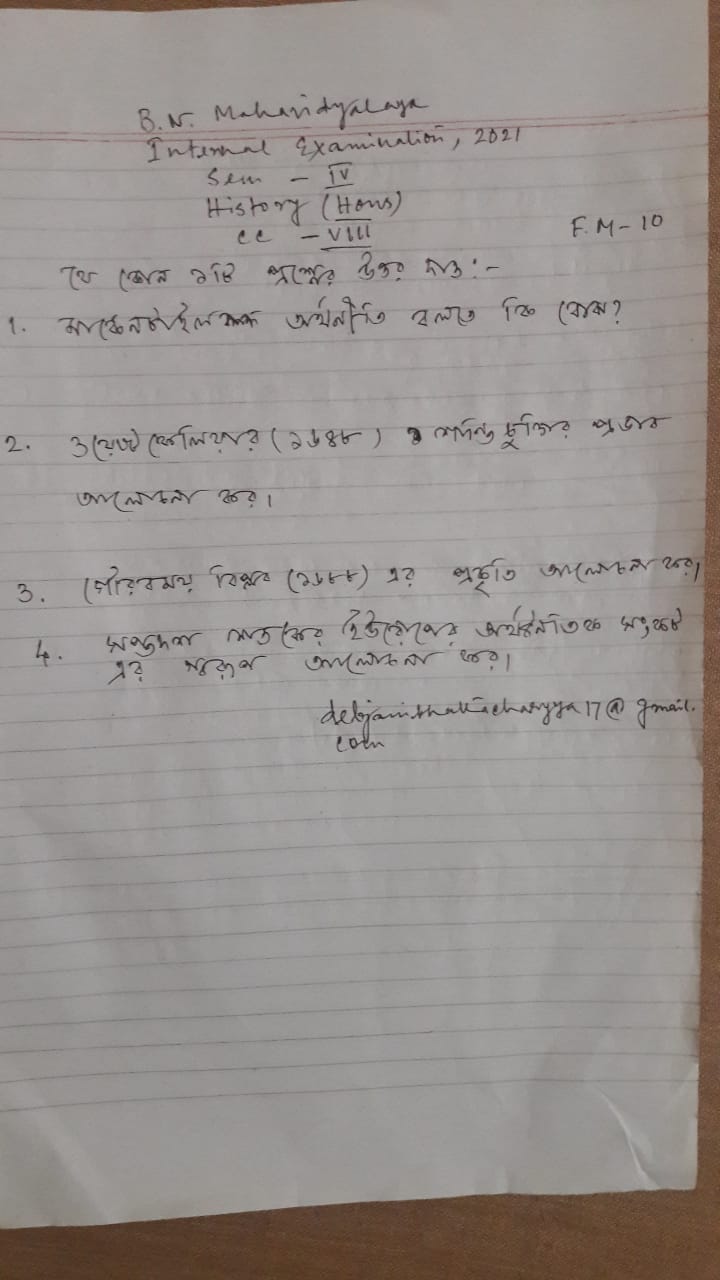 B.N. Mahavidyalaya
Internal Examination, 2021
Sem - IV
History (Hons)
CC - VIII
F.M - 10
যে কোন ১টি প্রশ্নের উত্তর দাও:-
1. মার্কেনটাইল অর্থনীতি বলতে কি বোঝ?
2. ওয়েস্টফেলিয়ার (১৬৪৮) শান্তি চুক্তির প্রভাব
আলোচনা কর।
3. গৌরবময় বিপ্লব (১৬৮৮) এর প্রকৃতি আলোচনা কর।
4. সপ্তদশ শতকের ইউরোপের অর্থনৈতিক সংকট
এর স্বরূপ আলোচনা কর।